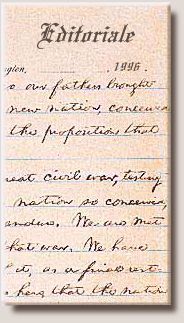 Editoriale
ngton, 1996.
s our fathers brought
new nation, conceived
the proposition that
reat civil war, testing
nation so conceived,
endure. We are met
that war. We have
it, as a final rest-
here that the nation